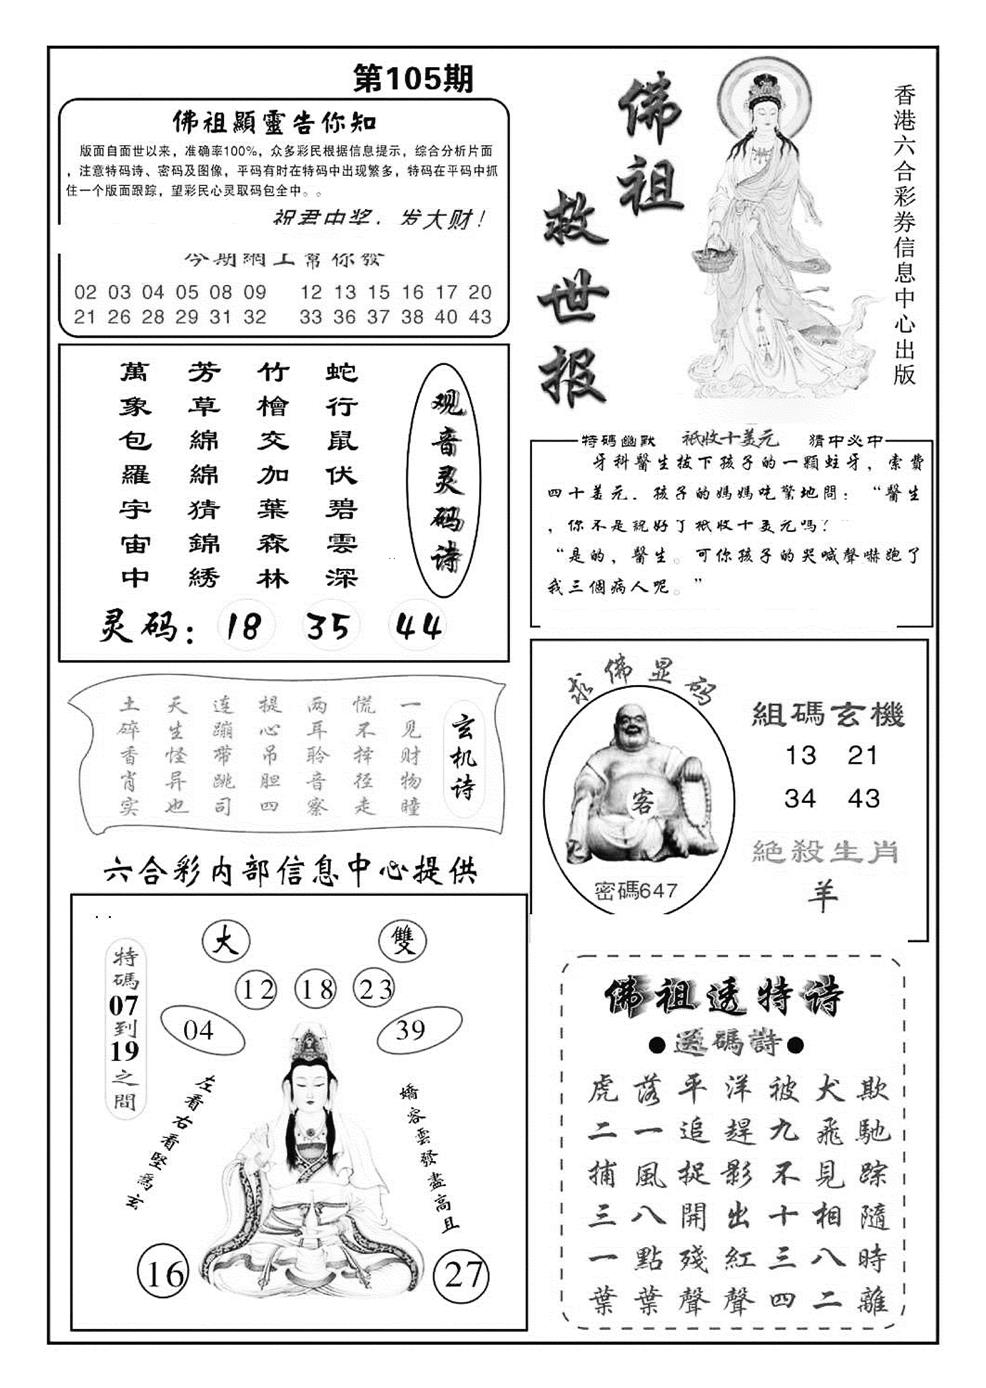 第105期
佛祖顯靈告你知
版面自面世以来，准确率100%，众多彩民根据信息提示，综合分析片面
，注意特码诗、密码及图像，平码有时在特码中出现繁多，特码在平码中抓
住一个版面跟踪，望彩民心灵取码包全中。。
祝君中奖，发大财！
今期網上幫你發
02 03 04 05 08 09 12 13 15 16 17 20
21 26 28 29 31 32 33 36 37 38 40 43
佛祖
救世报
香港六合彩券信息中心出版
观音灵码诗
蛇行鼠伏碧雲深
竹檜交加葉森林
芳草綿綿猜錦綉
萬象包羅宇宙中
灵码：18 35 44
特碼幽默 祇收十美元 猜中必中
牙科醫生拔下孩子的一顆蛀牙，索費
四十美元．孩子的媽媽吃驚地問：“醫生
，你不是說好了祇收十美元嗎？
“是的，醫生。可你孩子的哭喊聲嚇跑了
我三個病人呢。”
玄机诗
一见财物瞳
慌不择径走
两耳聆音察
提心吊胆四
连蹦带跳司
天生怪异也
土碎香肖实
求佛显码
客
密碼647
組碼玄機
13 21
34 43
絕殺生肖
羊
六合彩内部信息中心提供
特碼07到19之間
大
雙
12 18 23
04
39
左看右看堅爲玄
嬌容雲發盡高且
16
27
佛祖透特诗
●透碼詩●
虎落平洋被犬欺
二一追趕九飛馳
捕風捉影不見踪
三八開出十相隨
一點殘紅三八時
葉葉聲聲四二離